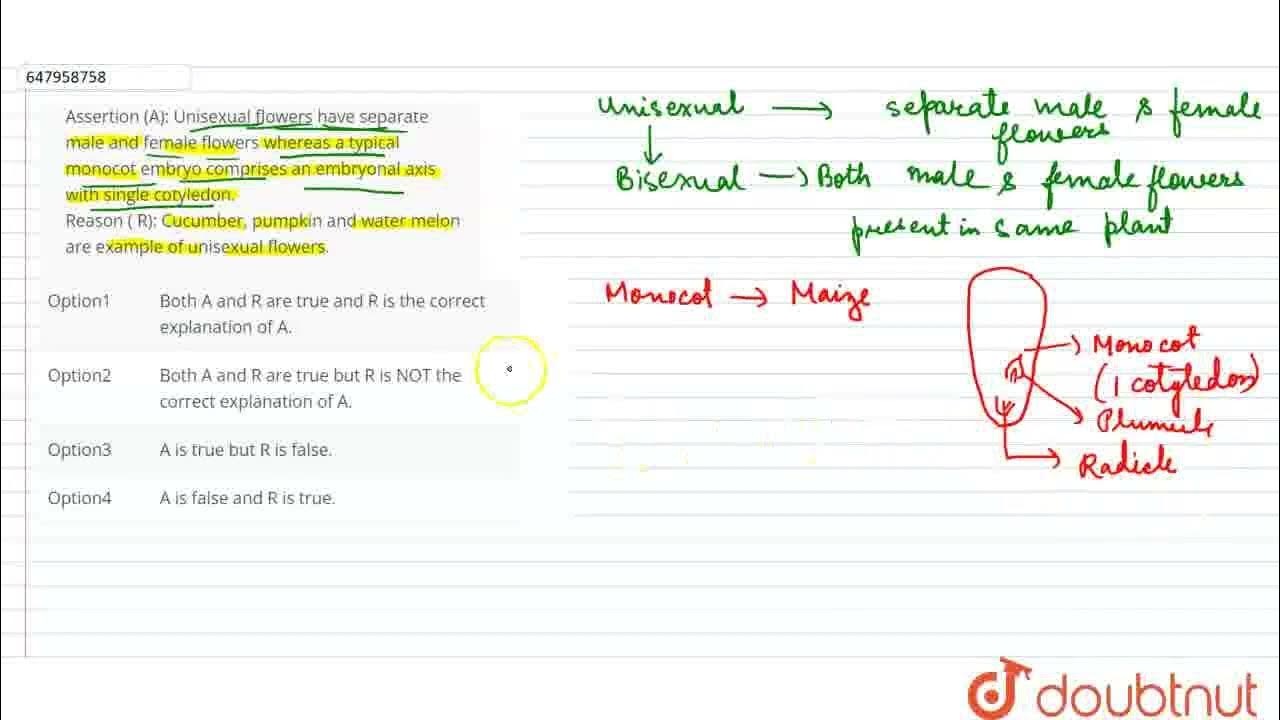 647958758
Assertion (A): Unisexual flowers have separate
male and female flowers whereas a typical
monocot embryo comprises an embryonal axis
with single cotyledon.
Reason ( R): Cucumber, pumpkin and water melon
are example of unisexual flowers.
Option1 Both A and R are true and R is the correct
explanation of A.
Option2 Both A and R are true but R is NOT the
correct explanation of A.
Option3 A is true but R is false.
Option4 A is false and R is true.
Unisexual → separate male & female
flowers
Bisexual → Both male & female flowers
present in same plant
Monocot → Maize
Monocot
(1 cotyledon)
Plumule
Radicle
doubtnut